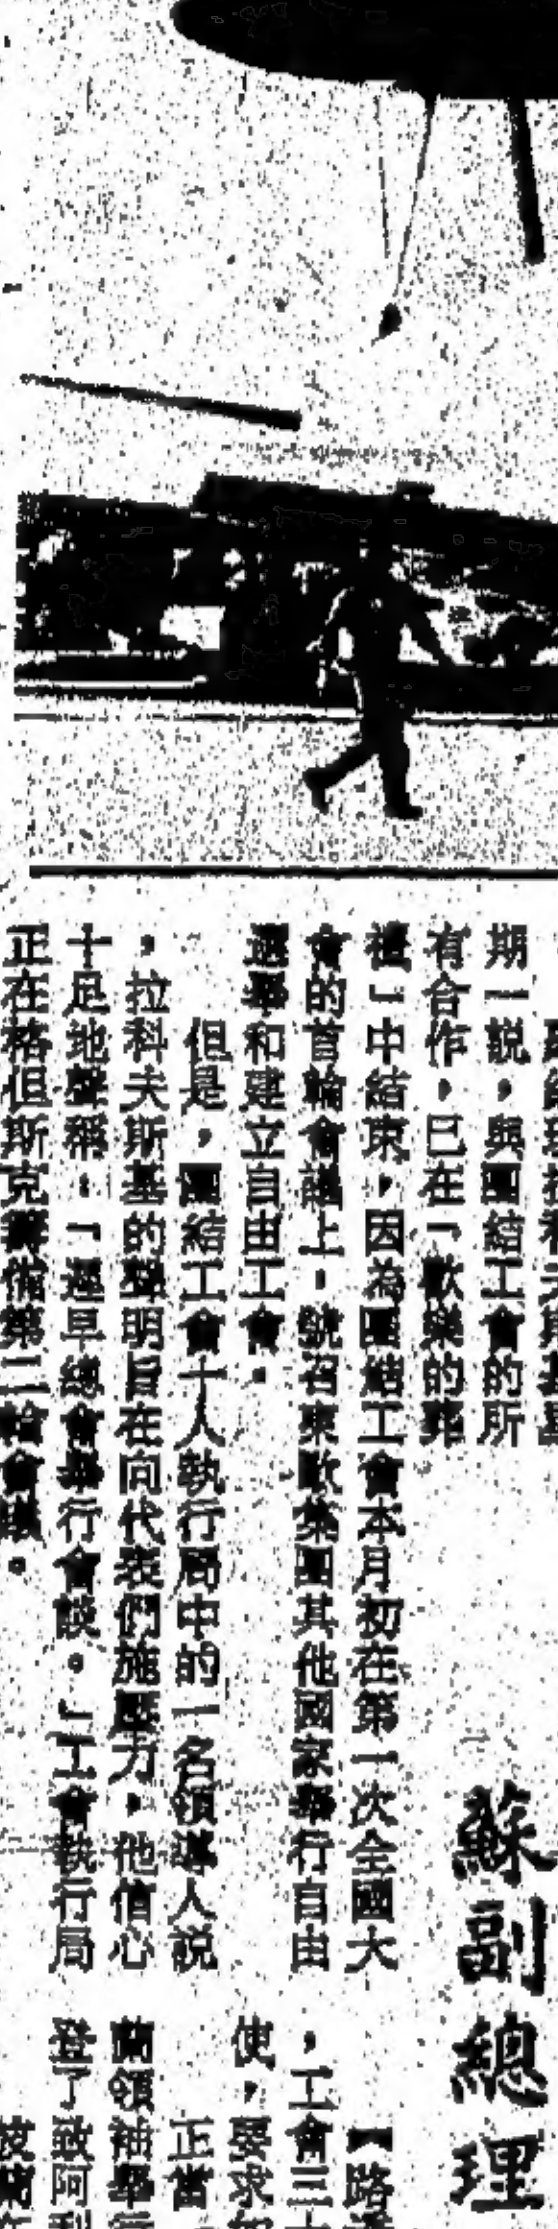 期一說，與團結工會的所
有合作，已在「歡樂的葬
禮」中結束，因為團結工會本月初在第一次全國大
會的首輪會議上，號召東歐集團其他國家舉行自由
選舉和建立自由工會。
但是，團結工會十人執行局中的一名領導人說
，拉科夫斯基的聲明旨在向代表們施壓力，他信心
十足地聲稱：「遲早總會舉行會談。」工會執行局
正在格但斯克籌備第二輪會議。
蘇副總理
【路透
，工會三十
使，要求
正當
蘭領袖舉行
登了致阿